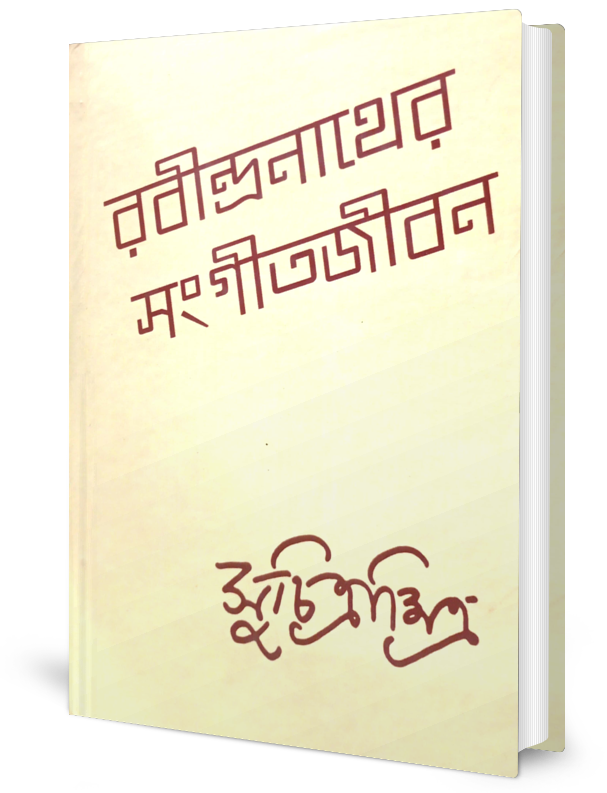 রবীন্দ্রনাথের
সংগীতজীবন
সুচিত্রা মিত্র